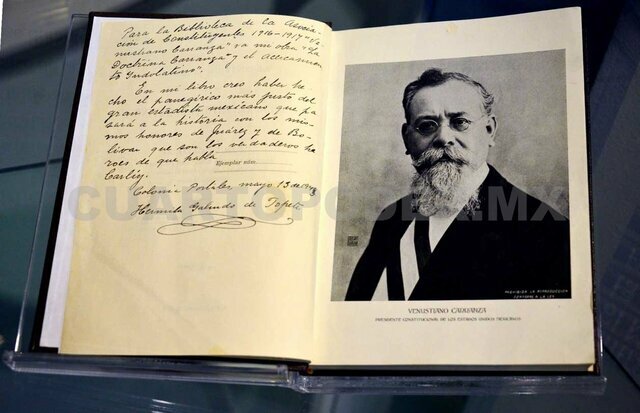 Para la Biblioteca de la Asocia-
ción de Constituyentes 1916-1917 "Ve-
nustiano Carranza", va mi obra "La
Doctrina Carranza" y el Acercamien-
to Indolatino".
En mi libro creo haber he-
cho el panegírico mas justo del
gran estadista mexicano que pa-
sará a la historia con los mis-
mos honores de Juárez y de Bo-
lívar que son los verdaderos hé-
roes de que habla
Carlyle.
Ejemplar núm.
Colonia Portales, mayo 13 de
Hermila Galindo de Topete
CUARTOPODER.MX
PROHIBIDA LA REPRODUCCION
CONFORME A LA LEY
VENUSTIANO CARRANZA
PRESIDENTE CONSTITUCIONAL DE LOS ESTADOS UNIDOS MEXICANOS